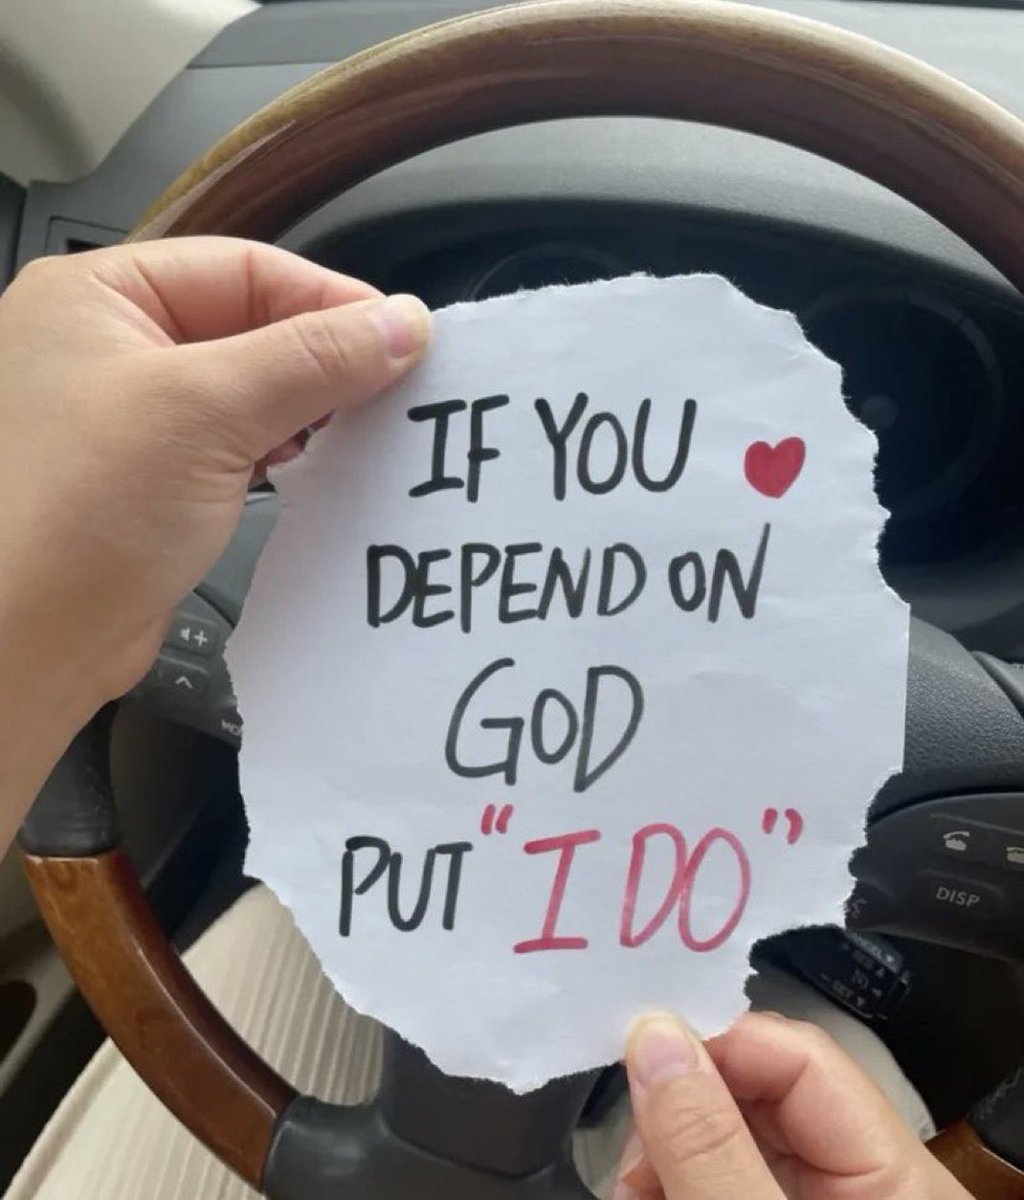 IF YOU
DEPEND ON
GOD
PUT "I DO"
DISP